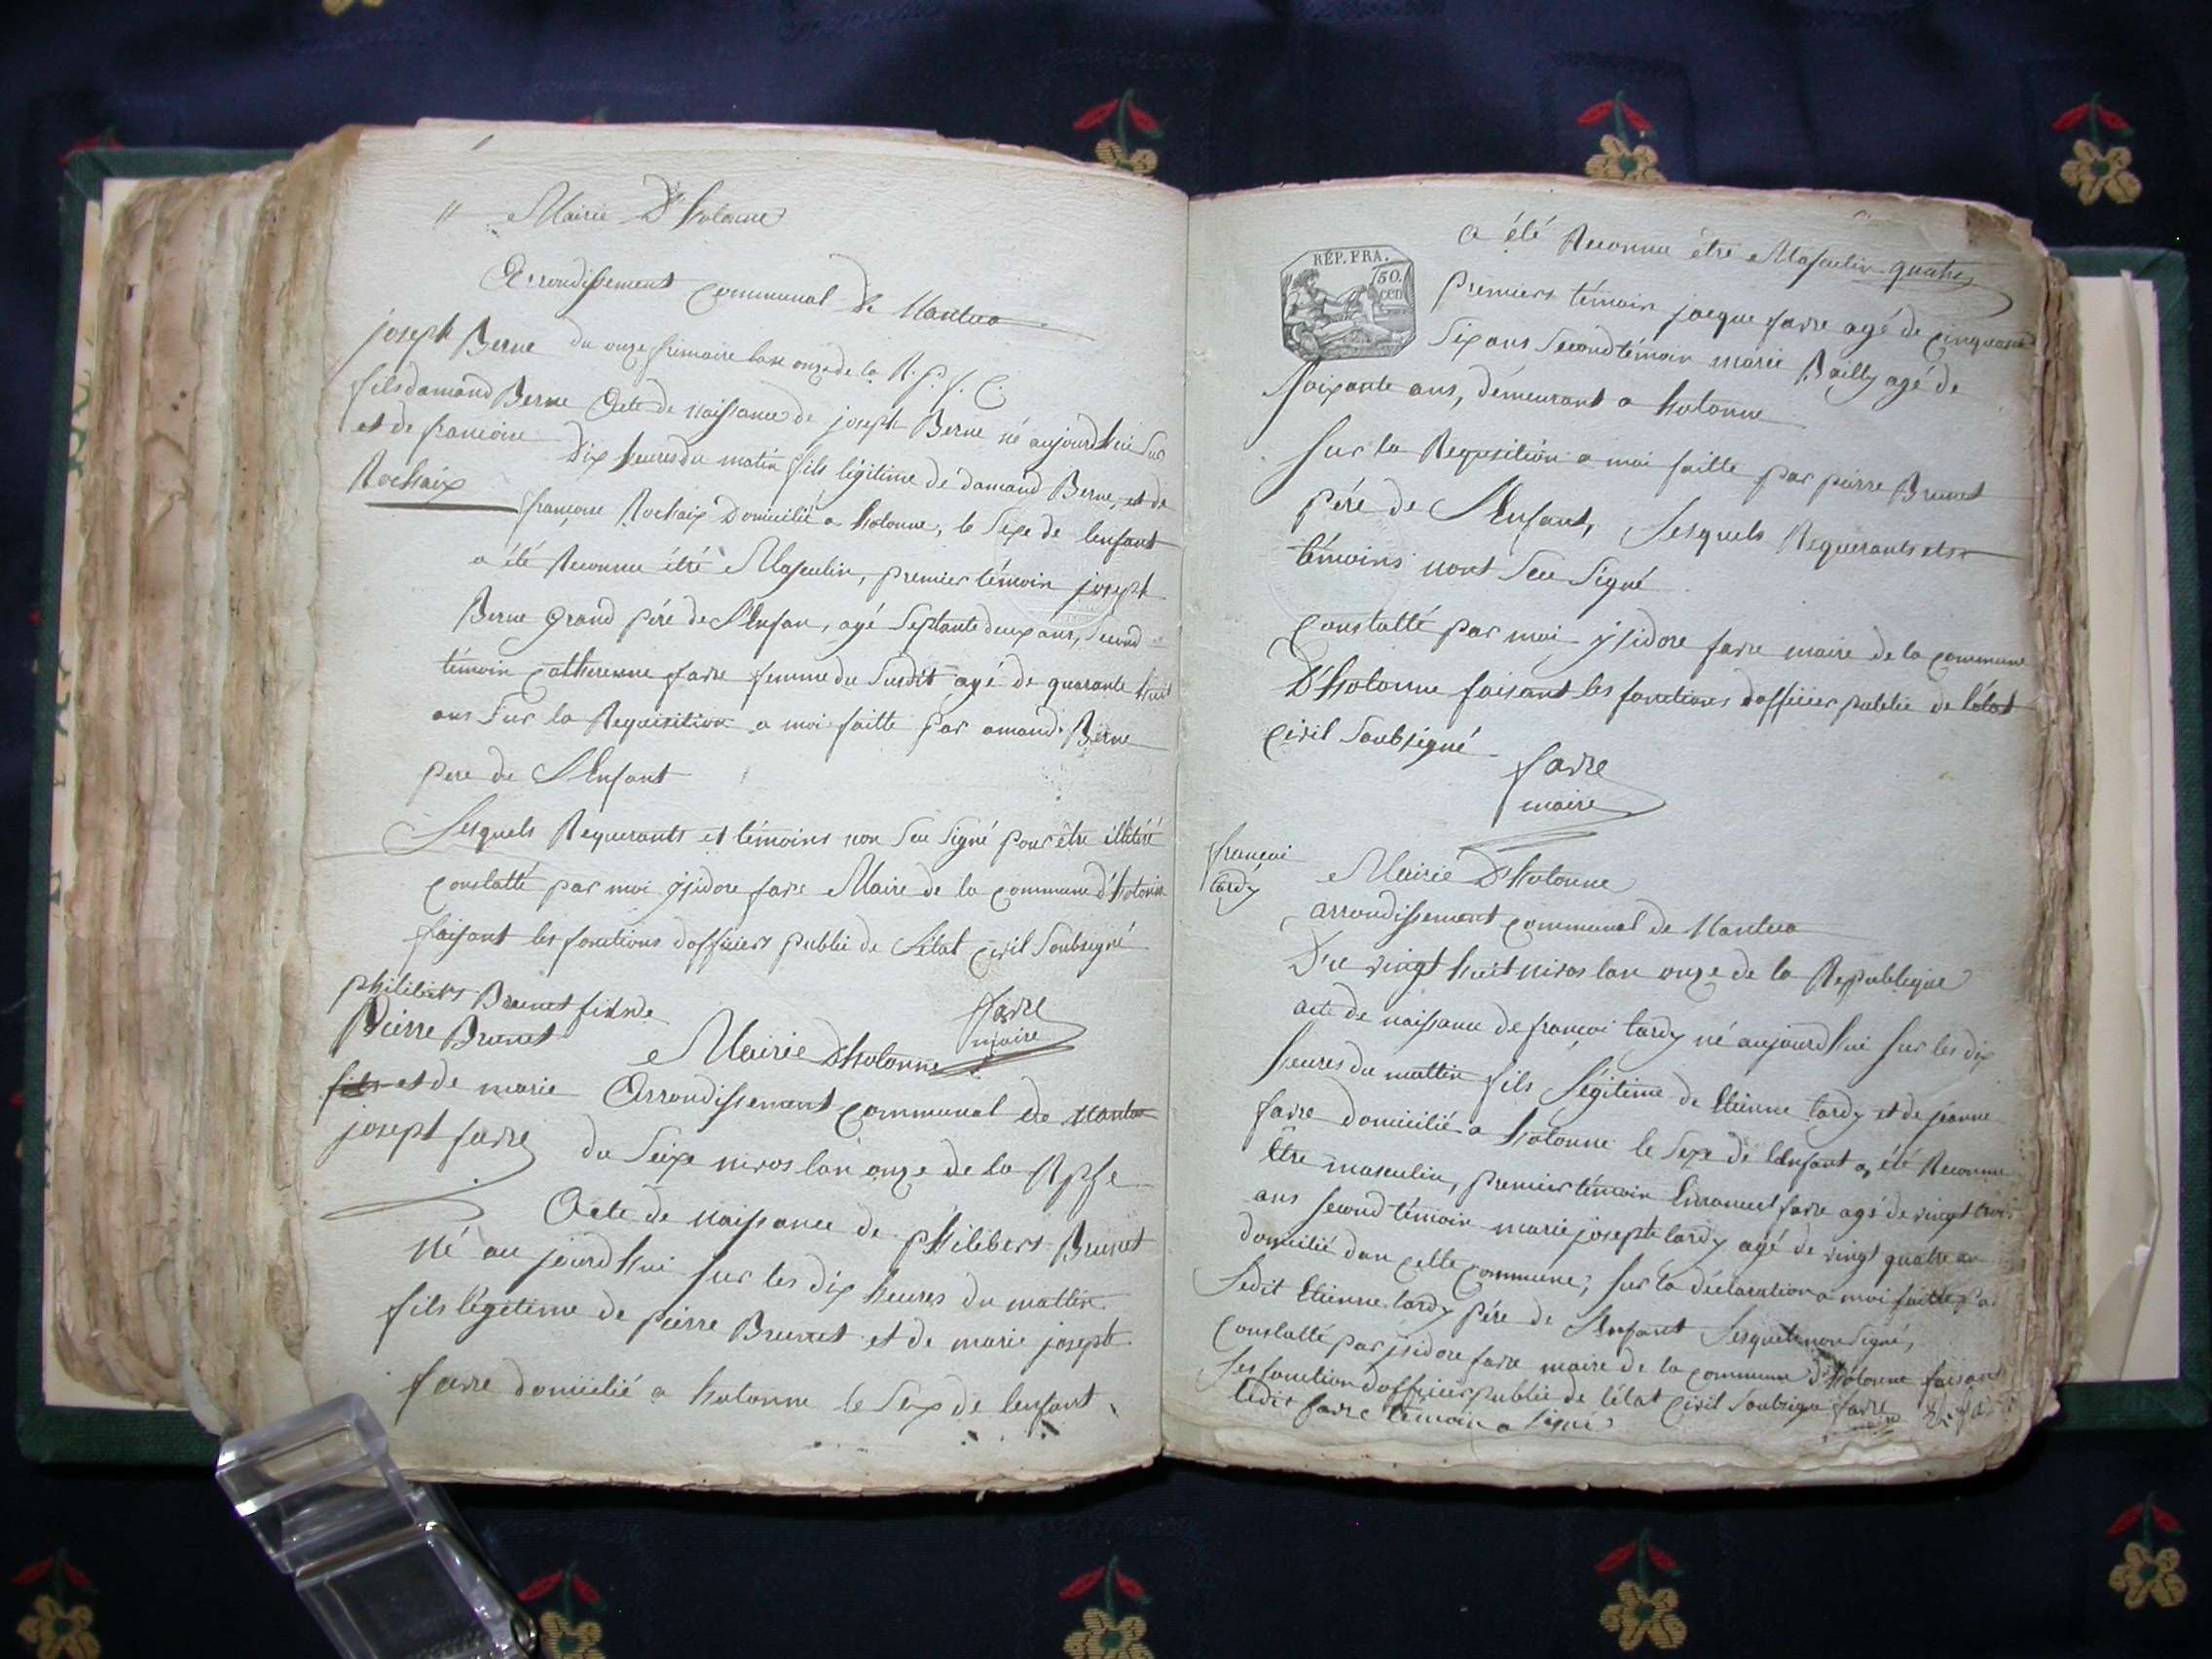 Mairie D'hotonne
Arrondissement communal de Nantua
joseph Berne
fils damand Berne
et de francoise
Rochaix
du onze frimaire lan onze de la R.
Acte de naissance de joseph Berne né aujourdhui sur
dix heures du matin fils légitime de damand Berne, et de
françoise Rochaix Domicilié a hotonne, le sexe de lenfant
a été Reconnu étre Masculin, premier témoin joseph
Berne grand pére de l'Enfan, agé septante deux ans, second
témoin catherenne favre femme du susdit agé de quarante huit
ans sur la Requisition a moi faitte par amand Berne
pere de l'Enfant
Lesquels Requerants et témoins non seu signé pour être
constatté par moi ysidore favre Maire de la commune d'hotonne
faisant les fonctions dofficiers public de l'état civil soubsigné
favre
maire
philiberts Brunet fils de
Pierre Brunet
fils et de marie
joseph favre
Mairie D'hotonne
Arrondissement communal de Nantua
du seize nivos lan onze de la
Acte de naissance de philibert Brunet
né au jourdhui sur les dix heures du mattin
fils légitime de pierre Brunet et de marie joseph
favre domicilié a hotonne le sex de lenfant
a été Reconnu être Masculin quatre
RÉP. FRA.
50.
cen
premiers témoin jacque favre agé de cinquante
six ans second témoin marie Bailly agé de
soixante ans, demeurant a hotonne
sur la Requisition a moi faitte par pierre Brunet
pére de l'Enfant, Lesquels Requerants et
témoins nont seu signé
constatté par moi ysidore favre maire de la commune
D'hotonne faisant les fonctions dofficier public de l'état
civil soubsigné
favre
maire
françoi
tardy
Mairie D'hotonne
arrondissement communal de Nantua
Du vingt huit nivos lan onze de la Republique
acte de naissance de françoi tardy né aujourdhui sur les dix
heures du mattin fils légitime de Etienne tardy et de jeanne
favre domicilié a hotonne le sexe de lEnfant a été Reconnu
être masculin, premier témoin Emanuel favre agé de vingt trois
ans second témoin marie josepte tardy agé de vingt quatre an
domicilié dan cette commune, sur la déclaration a moi faitte par
Ledit Etienne tardy pére de l'Enfant Lesquels non signé,
constatté par isidore favre maire de la commune d'hotonne faisant
les fonction dofficier public de létat civil soubsigné favre
ledit favre témoin a signé